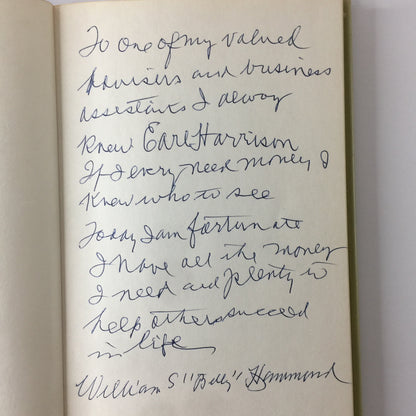 To one of my valued
Advisers and business
assestants I alway
knew Earl Harrison
If I every need money I
knew who to see
Today I am fortunate
I have all the money
I need and plenty to
help others succeed
in life
William S "Billy" Hammond